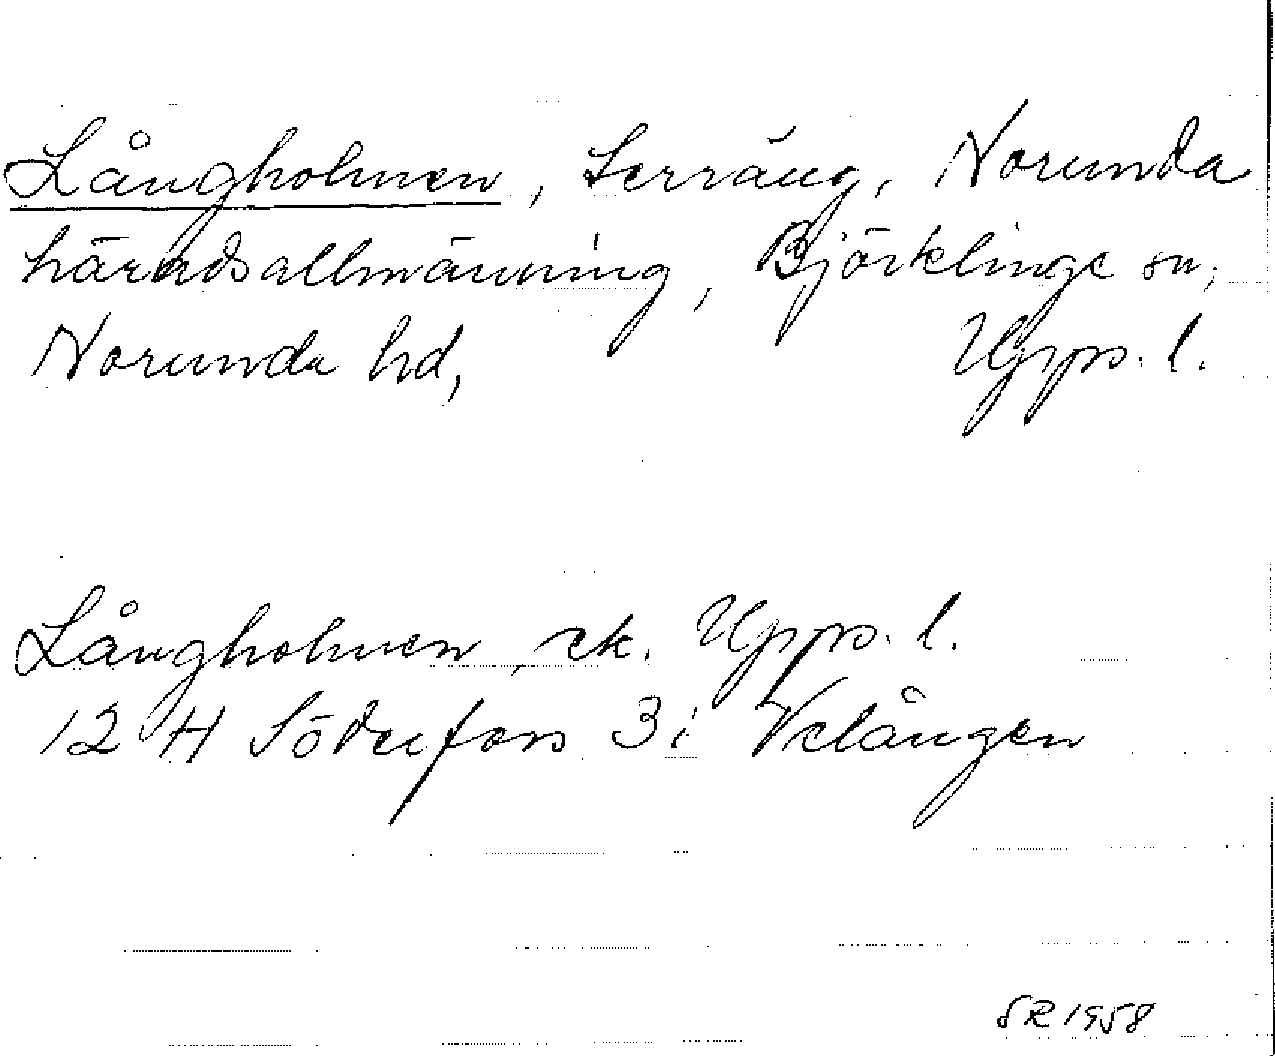 Långholmen, terräng, Norunda
häradsallmänning, Björklinge sn,
Norunda hd, Upps. l.
Långholmen, ek. Upps. l.
12 H Söderfors 3 i Velängen
SR 1958